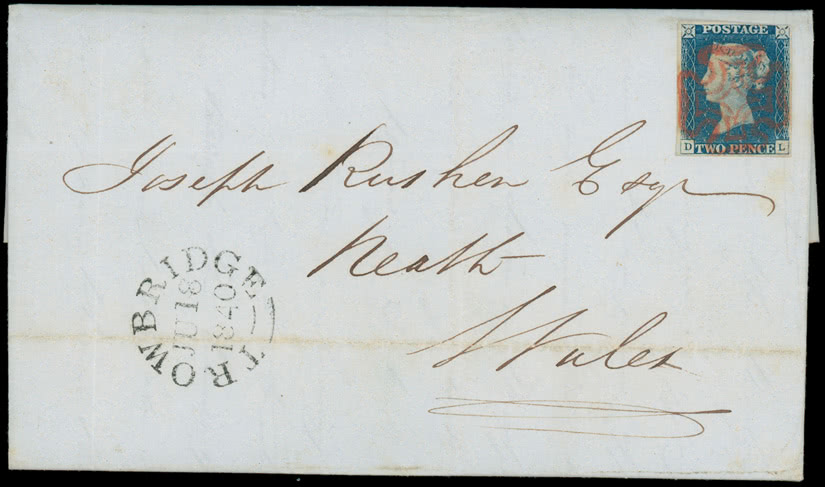 POSTAGE
D TWO PENCE L
Joseph Rushen Esqr
Neath
Wales
TROWBRIDGE
JU 18
1840